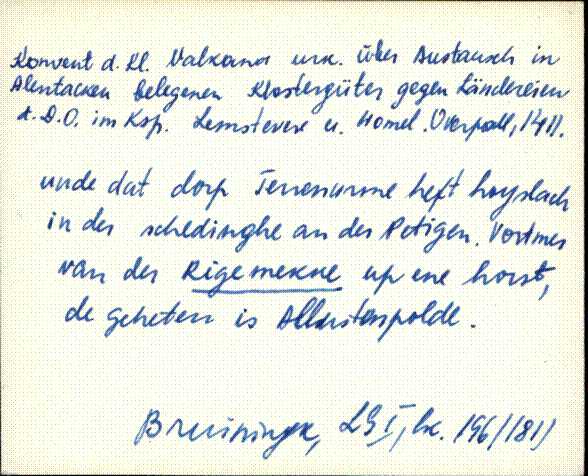 Konvent d. Kl. Valkana urk. über Austausch in
Alentacken belegenen Klostergüter gegen Ländereien
d. D.O. im Ksp. Lemstevere u. Homel. Overpall, 1411.
unde dat dorp heft hoyslach
in der schedinghe an der Petigen. Vortmer
van der Rigemekne up ene horst,
de geheten is
Bruiningk, LG I, lk. 196/181)